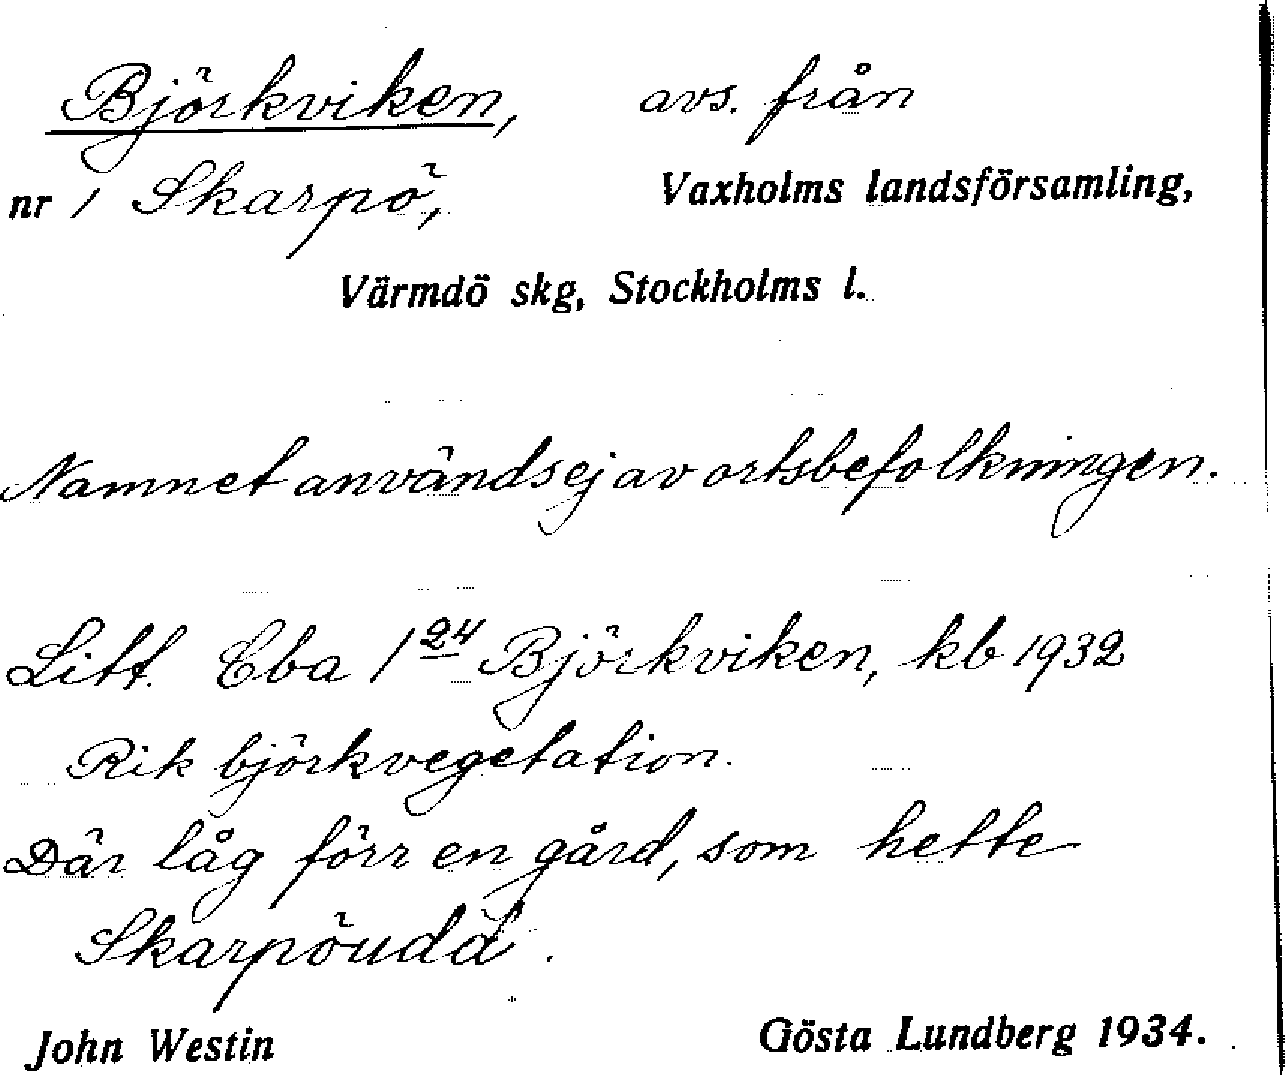 Björkviken, avs. från
nr 1 Skarpö, Vaxholms landsförsamling,
Värmdö skg, Stockholms l.
Namnet används ej av ortsbefolkningen.
Litt. Cba 1 24 Björkviken, kb 1932
Rik björkvegetation.
Där låg förr en gård, som hette
Skarpöudd.
John Westin Gösta Lundberg 1934.